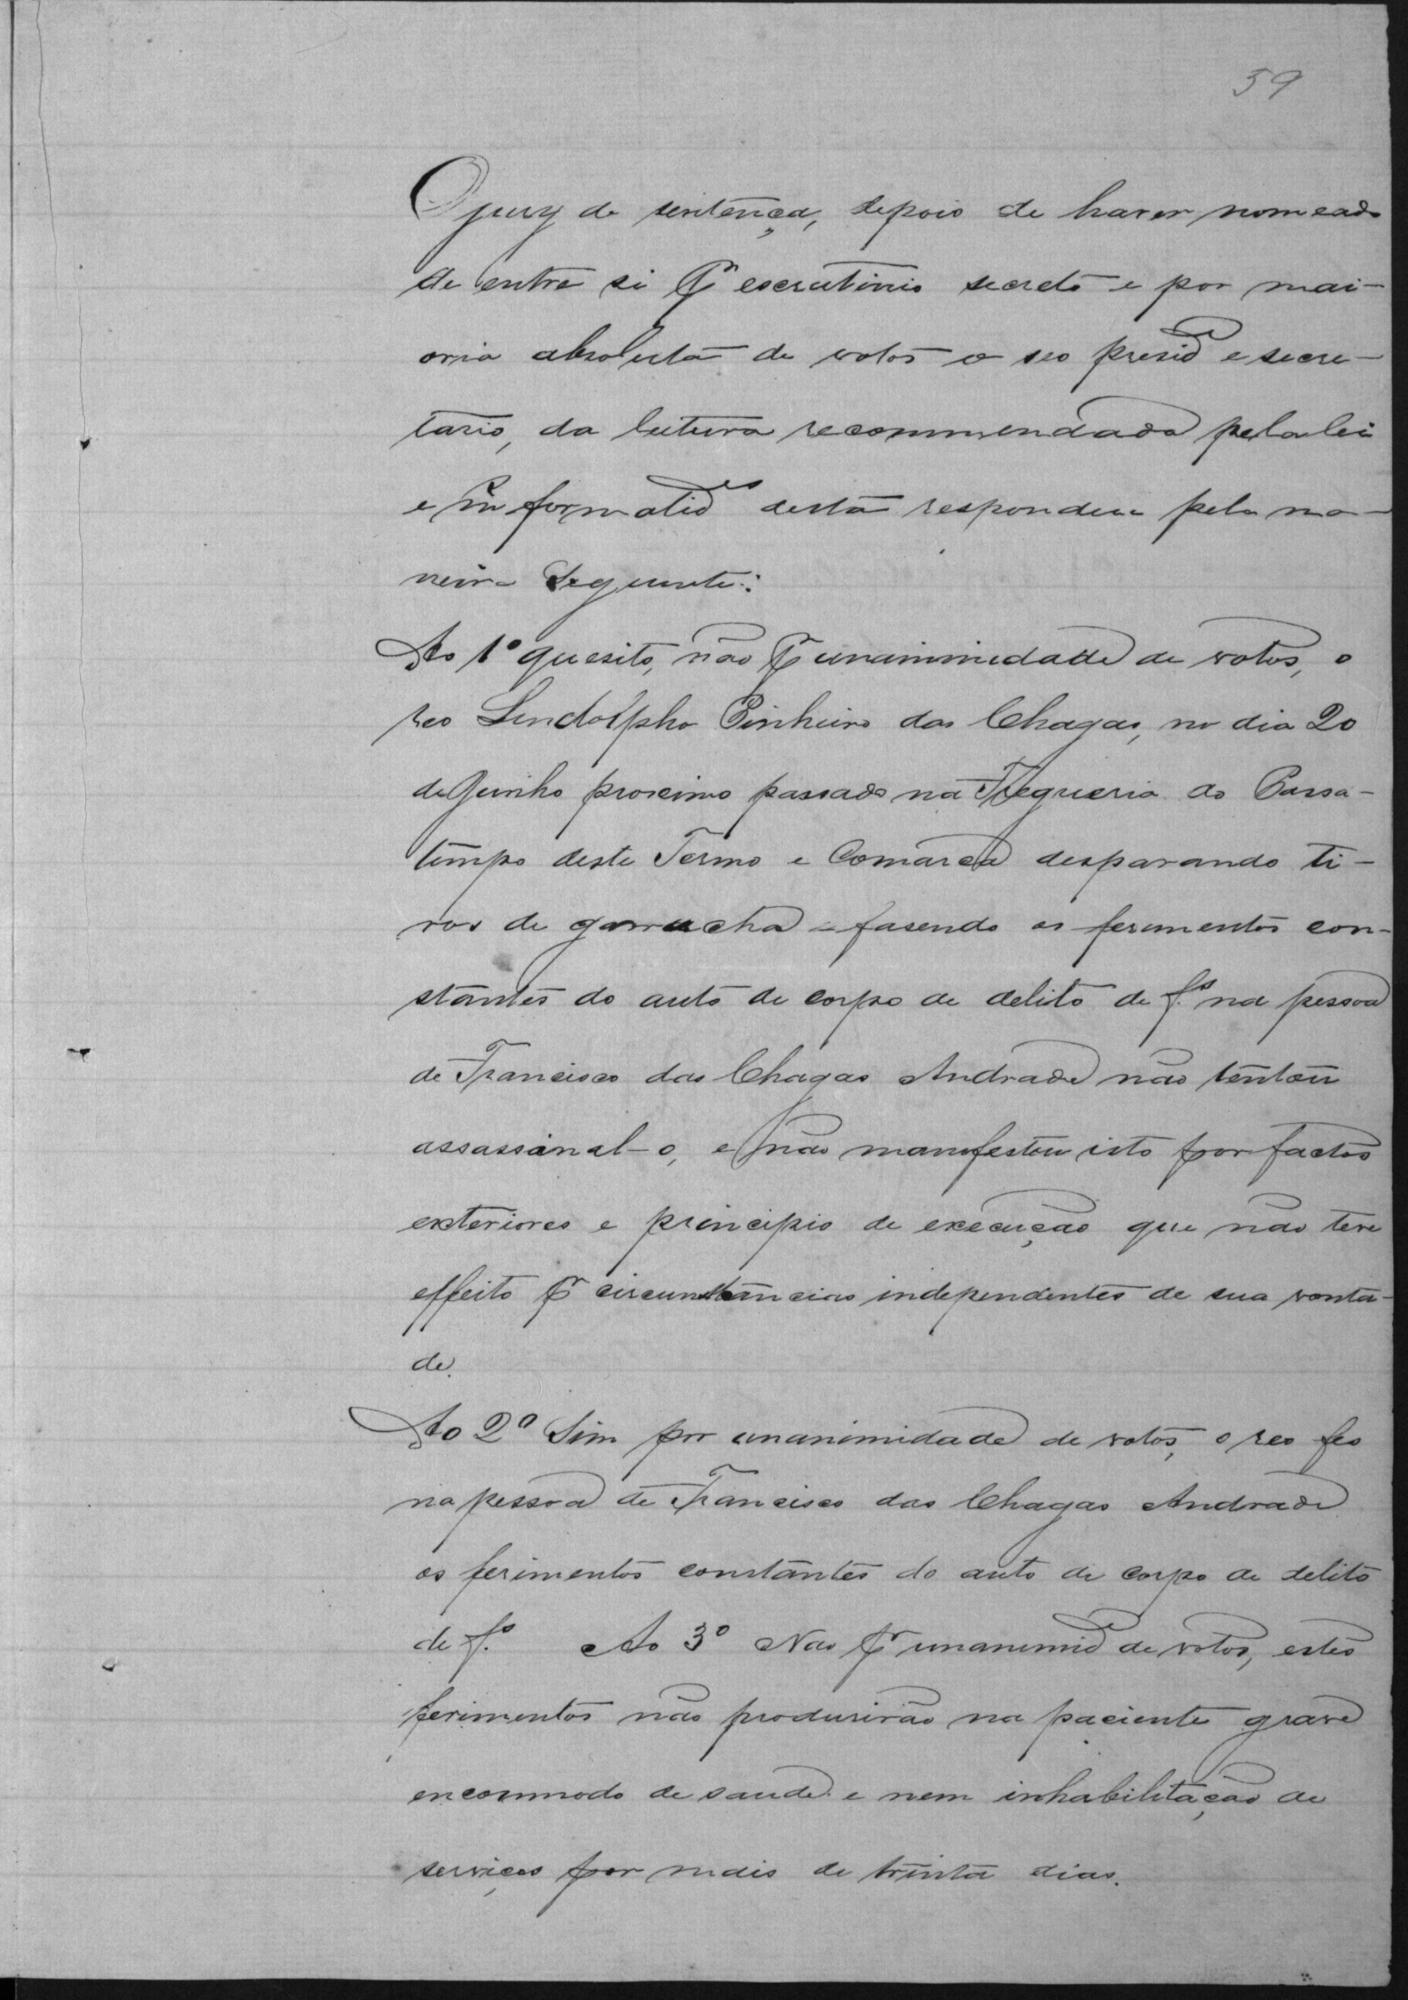 59
O jury de sentença, depois de haver nomeado
de entre si pr escrutinio secreto e por mai-
oria absoluta de votos o seo preside e secre-
tario, da leitura recommendada pela lei
e in formalides desta respondeu pela ma-
neira seguinte:
Ao 1º quesito, não pr unanimidade de votos, o
reo Lindolpho Pinheiro das Chagas, no dia 20
de Junho proximo passado na Fregueria do Passa-
tempo deste Termo e Comarca desparando ti-
ros de garrucha e fasendo os ferimentos con-
stantes do auto de corpo de delito de f.s na pessoa
de Francisco das Chagas Andrade não tentou
assassinal-o, e não manifestou isto por factos
exteriores e principio de execução que não teve
effeito pr circunstancias independentes de sua vonta-
de.
Ao 2º Sim por unanimidade de votos, o reo fes
na pessoa de Francisco das Chagas Andrade
os ferimentos constantes do auto de corpo de delito
de f.s Ao 3º Não pr unanimide de votos, estes
ferimentos não produsirão na paciente grave
encommodo de saude e nem inhabilitação de
serviços por mais de trinta dias.